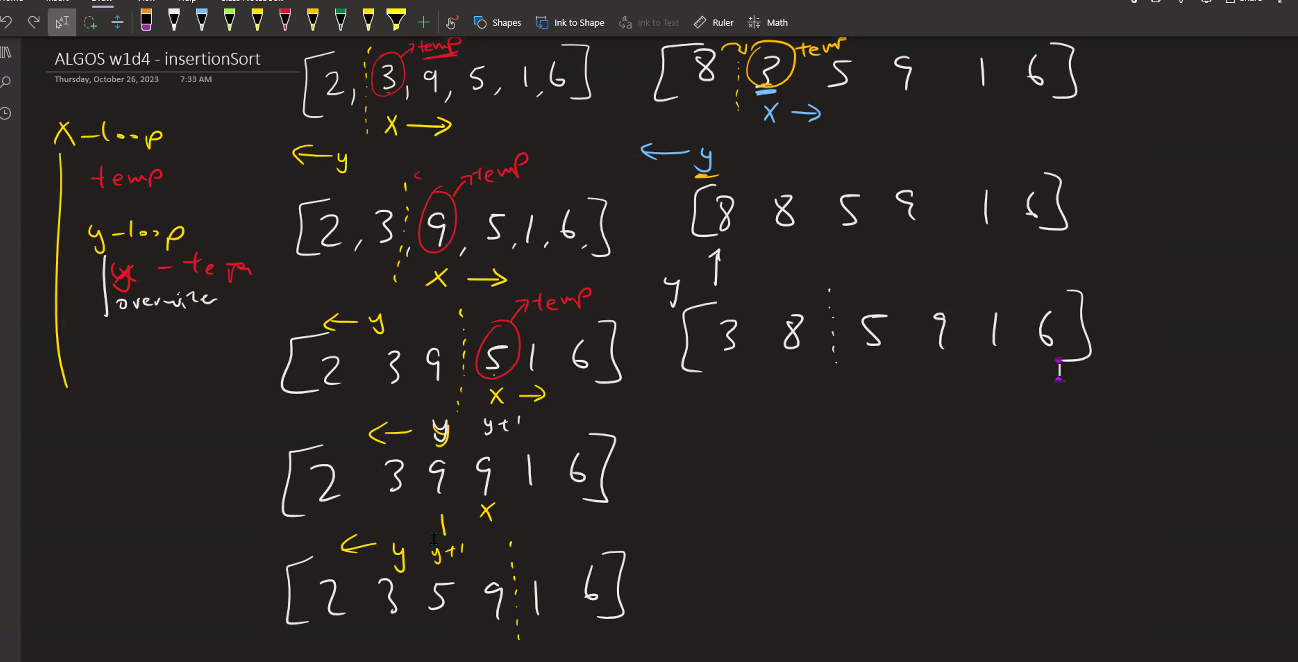 Shapes
Ink to Shape
Ink to Text
Ruler
Math
ALGOS w1d4 - insertionSort
Thursday, October 26, 2023 7:33 AM
X-loop
temp
y-loop
- temp
overwrite
temp
[2, 3, 9, 5, 1, 6]
X →
← y
temp
[2, 3, 9, 5, 1, 6,]
X →
← y
temp
[2 3 9 5 1 6]
X →
← y y+1
[2 3 9 9 1 6]
X
← y y+1
[2 3 5 9 1 6]
temp
[8 3 5 9 1 6]
X →
← y
[8 8 5 9 1 6]
y
[3 8 5 9 1 6]